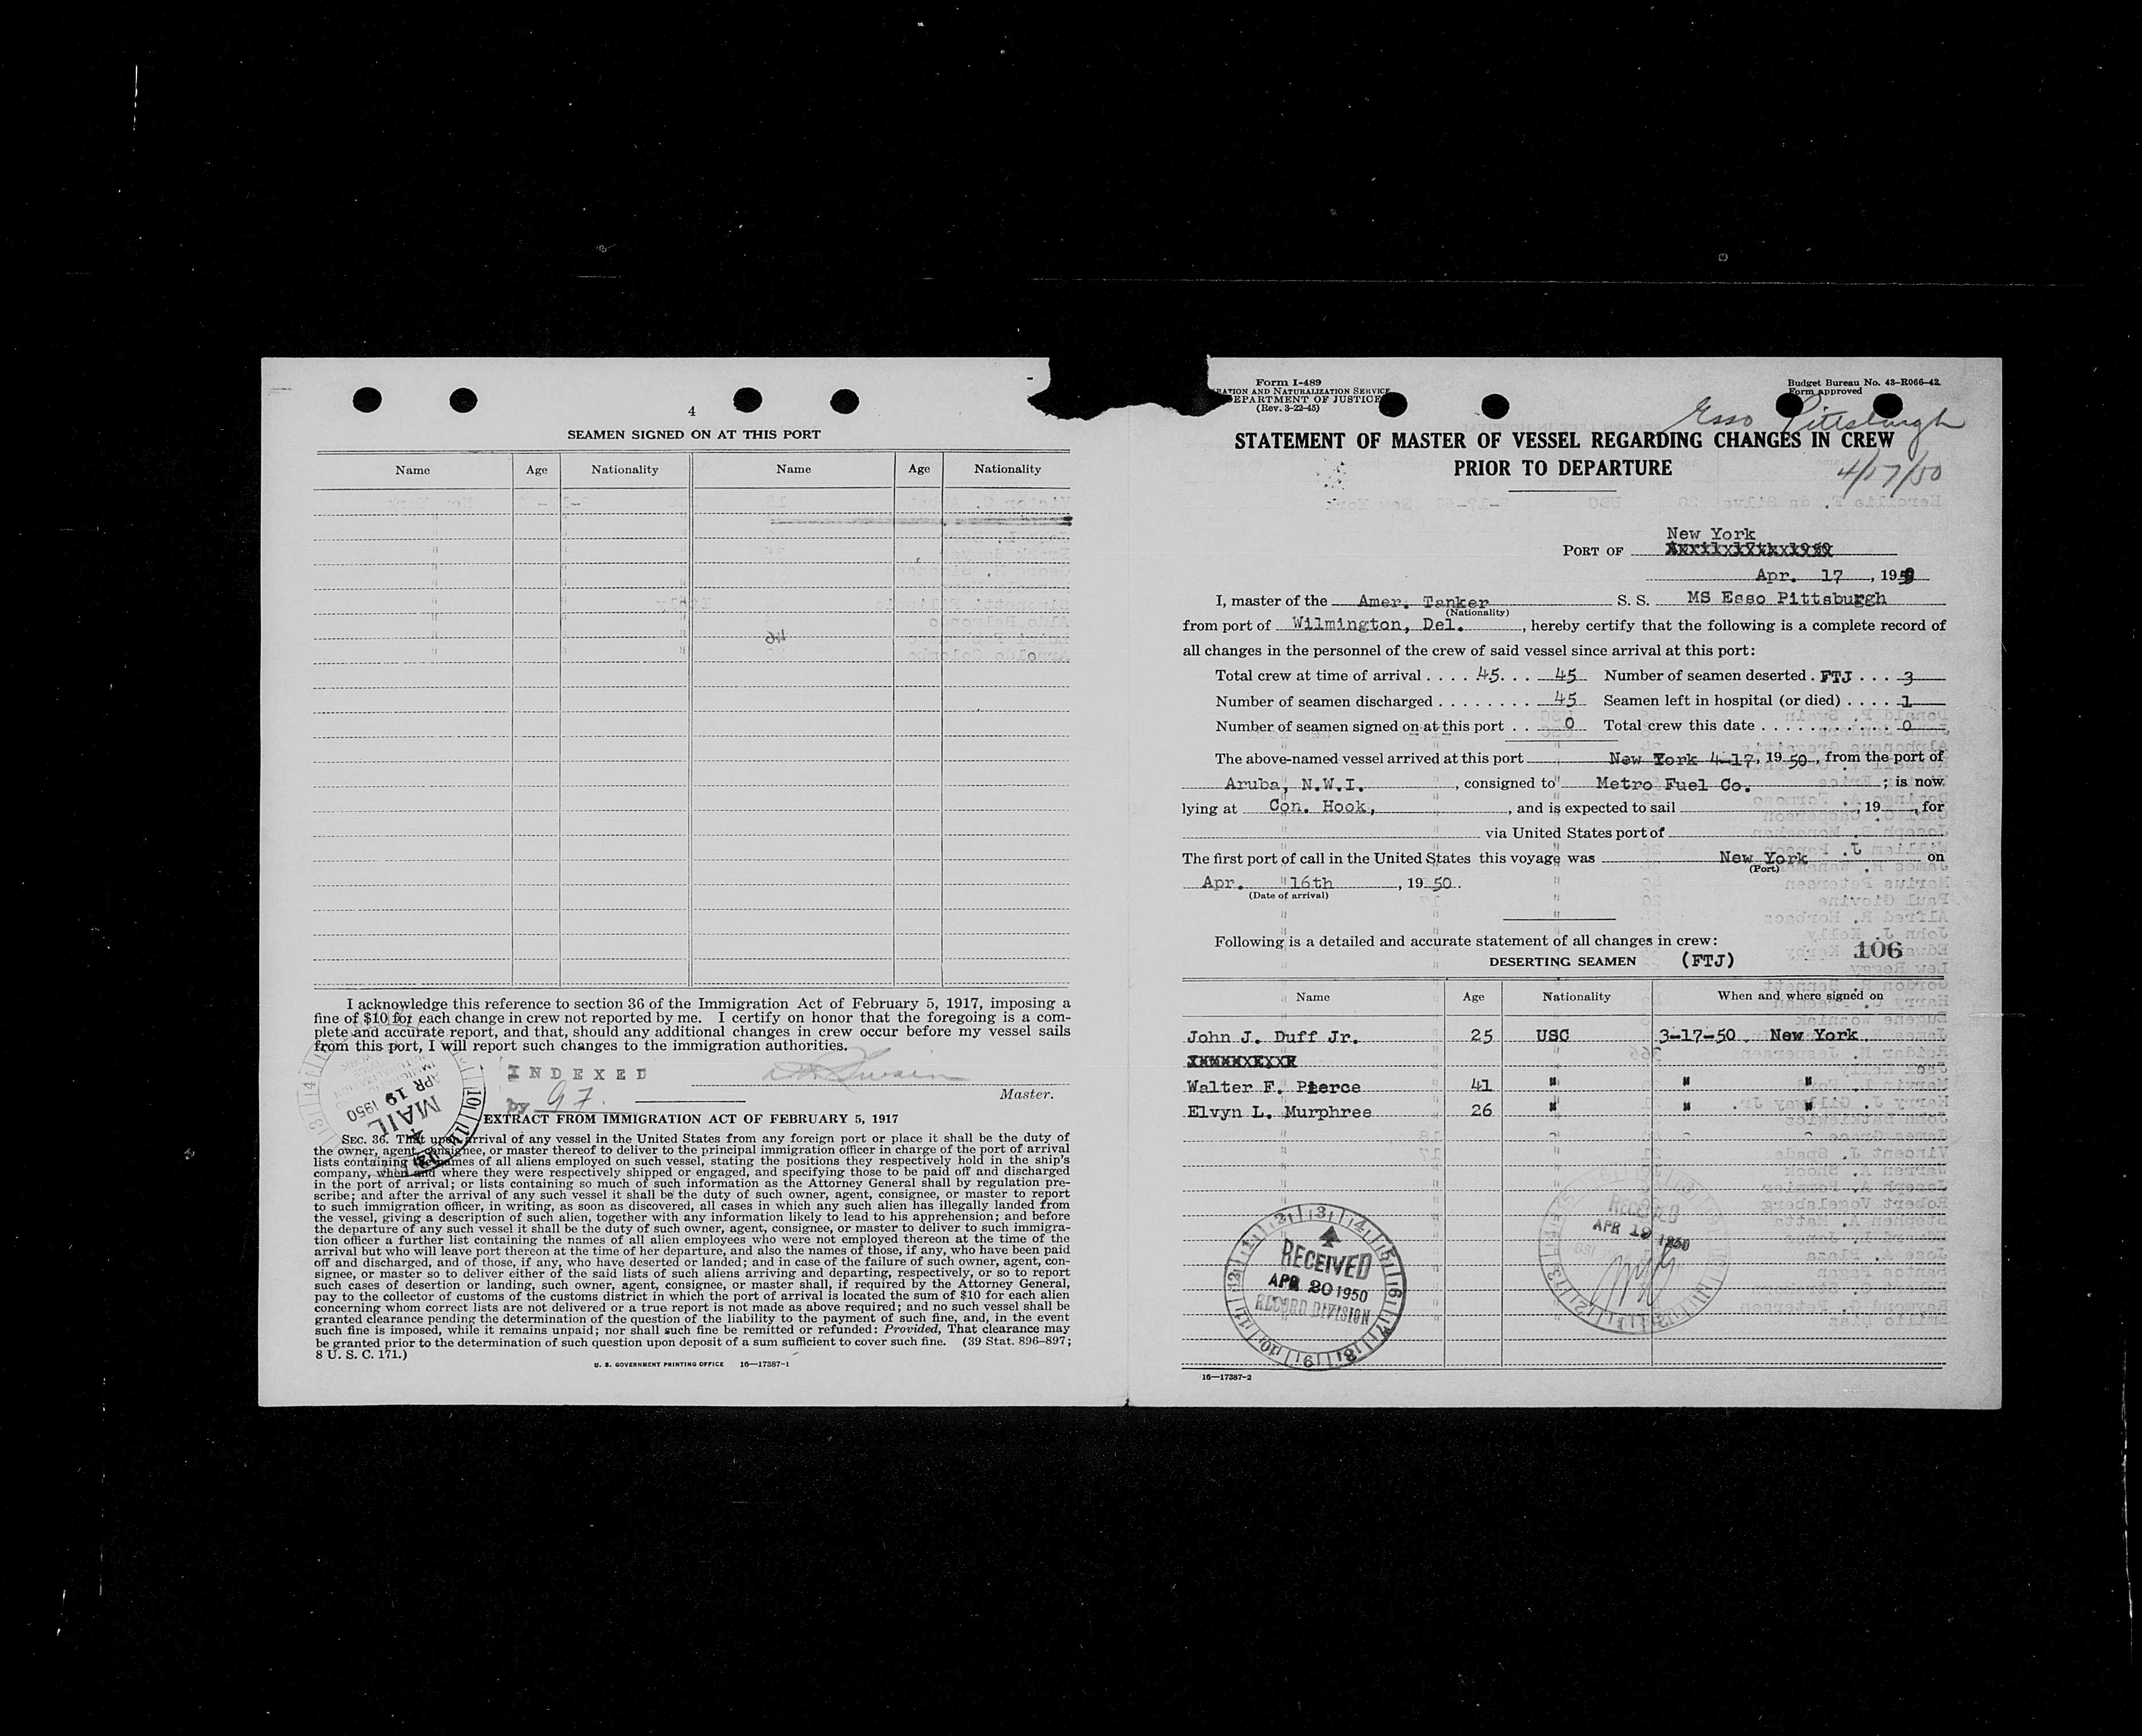 4
SEAMEN SIGNED ON AT THIS PORT
Name Age Nationality Name Age Nationality
I acknowledge this reference to section 36 of the Immigration Act of February 5, 1917, imposing a
fine of $10 for each change in crew not reported by me. I certify on honor that the foregoing is a com-
plete and accurate report, and that, should any additional changes in crew occur before my vessel sails
from this port, I will report such changes to the immigration authorities.
INDEXED
by
Master.
MAIL
APR 19 1950
EXTRACT FROM IMMIGRATION ACT OF FEBRUARY 5, 1917
SEC. 36. That upon arrival of any vessel in the United States from any foreign port or place it shall be the duty of
the owner, agent, consignee, or master thereof to deliver to the principal immigration officer in charge of the port of arrival
lists containing the names of all aliens employed on such vessel, stating the positions they respectively hold in the ship's
company, when and where they were respectively shipped or engaged, and specifying those to be paid off and discharged
in the port of arrival; or lists containing so much of such information as the Attorney General shall by regulation pre-
scribe; and after the arrival of any such vessel it shall be the duty of such owner, agent, consignee, or master to report
to such immigration officer, in writing, as soon as discovered, all cases in which any such alien has illegally landed from
the vessel, giving a description of such alien, together with any information likely to lead to his apprehension; and before
the departure of any such vessel it shall be the duty of such owner, agent, consignee, or master to deliver to such immigra-
tion officer a further list containing the names of all alien employees who were not employed thereon at the time of the
arrival but who will leave port thereon at the time of her departure, and also the names of those, if any, who have been paid
off and discharged, and of those, if any, who have deserted or landed; and in case of the failure of such owner, agent, con-
signee, or master so to deliver either of the said lists of such aliens arriving and departing, respectively, or so to report
such cases of desertion or landing, such owner, agent, consignee, or master shall, if required by the Attorney General,
pay to the collector of customs of the customs district in which the port of arrival is located the sum of $10 for each alien
concerning whom correct lists are not delivered or a true report is not made as above required; and no such vessel shall be
granted clearance pending the determination of the question of the liability to the payment of such fine, and, in the event
such fine is imposed, while it remains unpaid; nor shall such fine be remitted or refunded: Provided, That clearance may
be granted prior to the determination of such question upon deposit of a sum sufficient to cover such fine. (39 Stat. 896–897;
8 U. S. C. 171.)
U. S. GOVERNMENT PRINTING OFFICE 16—17387-1
Form I-489
RATION AND NATURALIZATION SERVICE
DEPARTMENT OF JUSTICE
(Rev. 3-22-45)
Budget Bureau No. 43-R066-42
Form approved
Esso Pittsburgh
STATEMENT OF MASTER OF VESSEL REGARDING CHANGES IN CREW
PRIOR TO DEPARTURE
4/17/50
New York
PORT OF
Apr. 17, 1950
I, master of the Amer. Tanker S. S. MS Esso Pittsburgh
(Nationality)
from port of Wilmington, Del., hereby certify that the following is a complete record of
all changes in the personnel of the crew of said vessel since arrival at this port:
Total crew at time of arrival .... 45 ... 45 Number of seamen deserted . FTJ ... 3
Number of seamen discharged ........ 45 Seamen left in hospital (or died) .... 1
Number of seamen signed on at this port .. 0 Total crew this date ............ 0
The above-named vessel arrived at this port New York 4-17, 19 50, from the port of
Aruba, N.W.I., consigned to Metro Fuel Co. ; is now
lying at Con. Hook, , and is expected to sail , 19 , for
via United States port of
The first port of call in the United States this voyage was New York on
(Port)
Apr. 16th, 19 50.
(Date of arrival)
Following is a detailed and accurate statement of all changes in crew:
106
DESERTING SEAMEN (FTJ)
Name Age Nationality When and where signed on
John J. Duff Jr. 25 USC 3-17-50 New York
Walter F. Pierce 41 " " "
Elvyn L. Murphree 26 " " "
RECEIVED
APR 20 1950
RECORD DIVISION
RECEIVED
APR 19 1950
16—17387-2